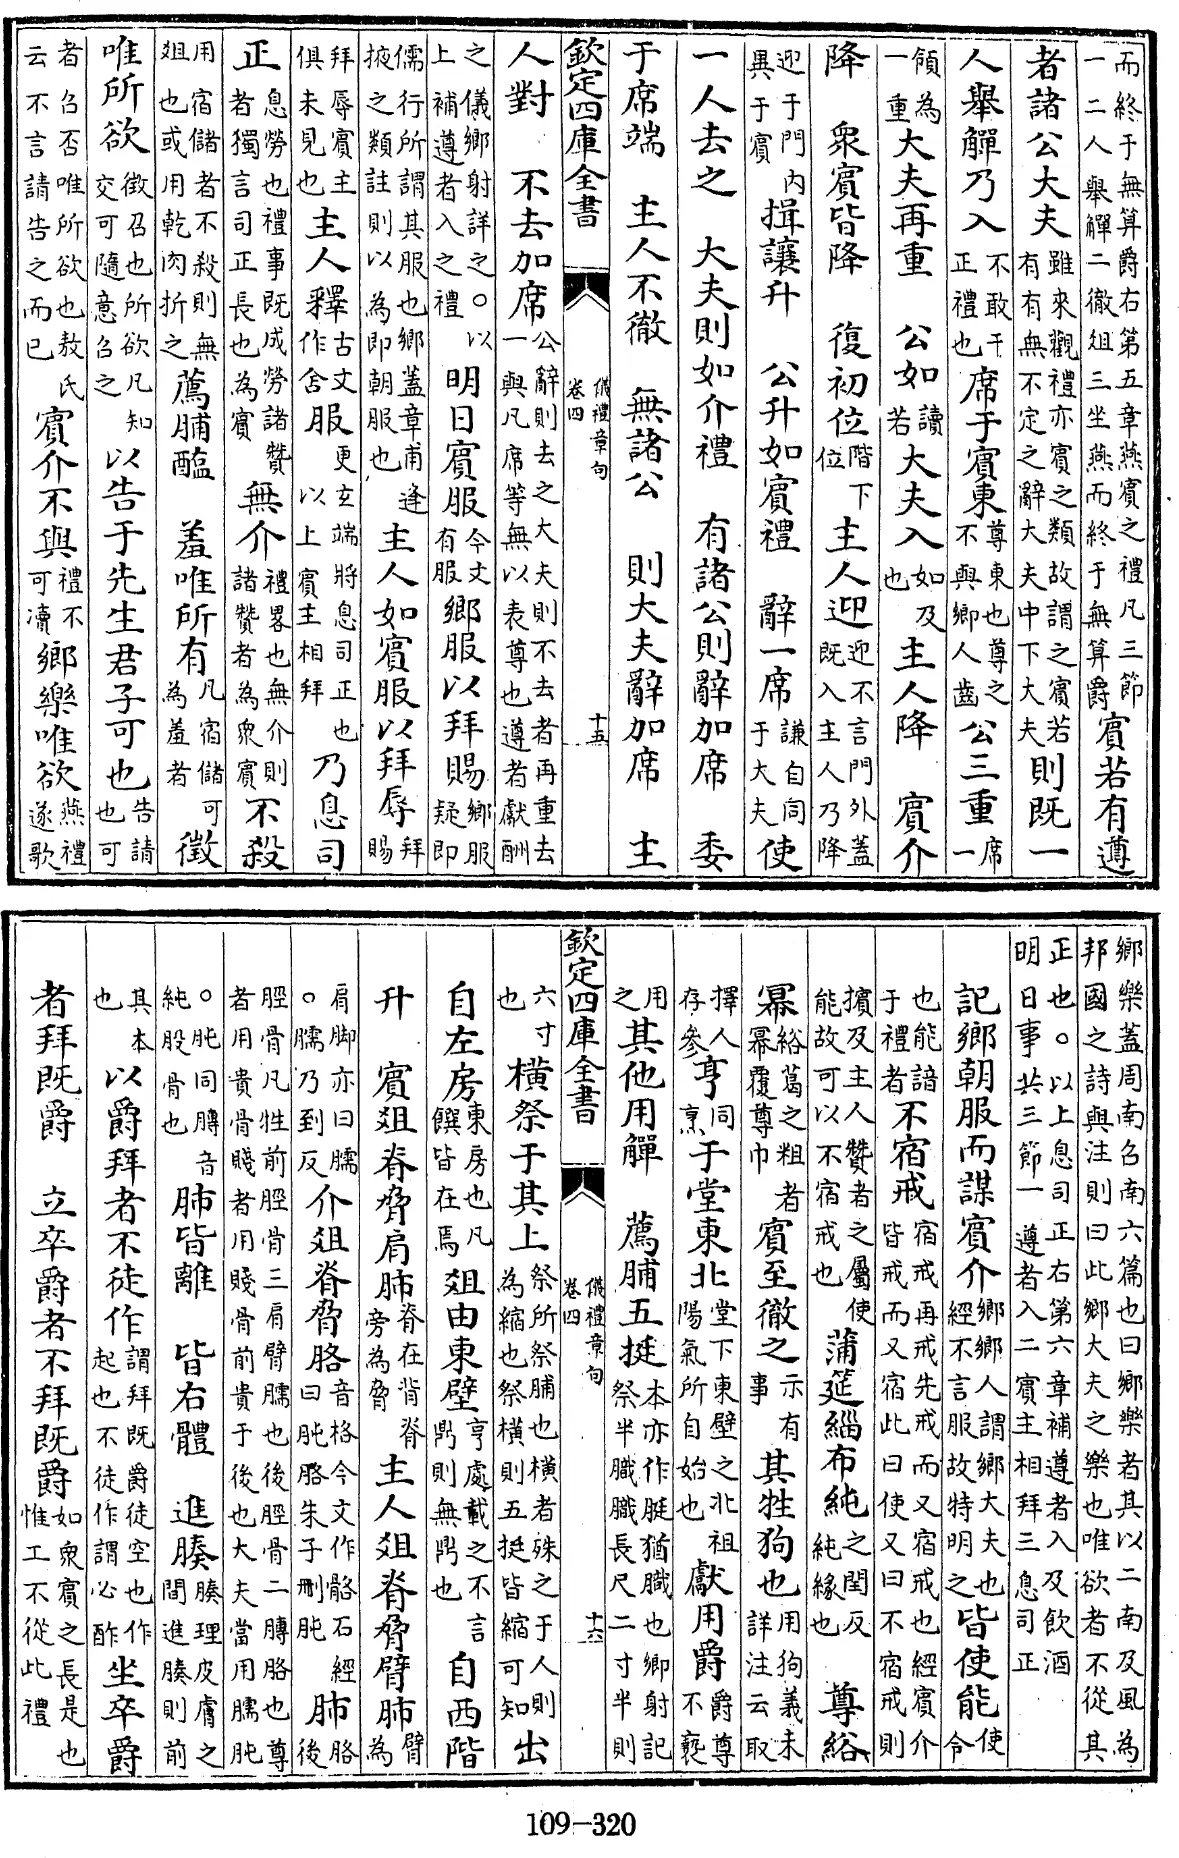 而終于無算爵右第五章燕賓之禮凡三節一二人舉觶二徹俎三坐燕而終于無算爵賓若有遵
者諸公大夫雖來觀禮亦賓之類故謂之賓若有有無不定之辭大夫中下大夫則既一
人舉觶乃入不敢干正禮也席于賓東尊東也尊之不與鄉人齒公三重席一
領為一重大夫再重 公如讀若大夫入如及也主人降 賓介
降 衆賓皆降 復初位階下位主人迎迎不言門外蓋既入主人乃降
迎于門内異于賓揖讓升 公升如賓禮 辭一席謙自同于大夫使
一人去之 大夫則如介禮 有諸公則辭加席 委
于席端 主人不徹 無諸公 則大夫辭加席 主
欽定四庫全書 儀禮章句 卷四 十五
人對 不去加席公辭則去之大夫則不去者再重去一與凡席等無以表尊也遵者獻酬
之儀鄉射詳之○以上補遵者入之禮明日賓服今文有服鄉服以拜賜鄉服疑即
儒行所謂其服也鄉蓋章甫逢掖之類註則以為即朝服也主人如賓服以拜辱拜賜
拜辱賓主俱未見也主人釋古文作舍服更玄端將息司正也以上賓主相拜乃息司
正息勞也禮事既成勞諸贊者獨言司正長也為賓無介禮畧也無介則諸贊者為衆賓不殺
用宿儲者不殺則無俎也或用乾肉折之薦脯醢 羞唯所有凡宿儲可為羞者徵
唯所欲徵召也所欲凡知交可隨意召之以告于先生君子可也告請也可
者召否唯所欲也敖氏云不言請告之而已賓介不與禮不可瀆鄉樂唯欲燕禮遂歌
鄉樂蓋周南召南六篇也曰鄉樂者其以二南及風為邦國之詩與注則曰此鄉大夫之樂也唯欲者不從其
正也○以上息司正右第六章補遵者入及飲酒明日事共三節一遵者入二賓主相拜三息司正
記鄉朝服而謀賓介鄉鄉人謂鄉大夫也經不言服故特明之皆使能使令
也能諳于禮者不宿戒宿戒再戒先戒而又宿戒也經賓介皆戒而又宿此曰使又曰不宿戒則
擯及主人贊者之屬使能故可以不宿戒也蒲筵緇布純純之閏反純緣也 尊綌
冪綌葛之粗者冪覆尊巾賓至徹之示有事其牲狗也用狗義未詳注云取
擇人存參亨同烹于堂東北堂下東壁之北祖陽氣所自始也獻用爵爵尊不褻
用之其他用觶 薦脯五挺本亦作脡猶膱也鄉射記祭半膱膱長尺二寸半則
欽定四庫全書 儀禮章句 卷四 十六
六寸也橫祭于其上祭所祭脯也橫者殊之于人則為縮也祭橫則五挺皆縮可知出
自左房東房也凡饌皆在焉俎由東壁亨處載之不言鼎則無鼎也自西階
升 賓俎脊脅肩肺脊在背脊旁為脅主人俎脊脅臂肺臂為
肩脚亦曰臑○臑乃到反介俎脊脅胳音格今文作骼石經曰肫胳朱子刪肫肺胳後
脛骨凡牲前脛骨三肩臂臑也後脛骨二膊胳也尊者用貴骨賤者用賤骨前貴于後也大夫當用臑肫
○肫同膊音純股骨也肺皆離 皆右體 進腠腠理皮膚之間進腠則前
其本也以爵拜者不徒作謂拜既爵徒空也作起也不徒作謂必酢坐卒爵
者拜既爵 立卒爵者不拜既爵如衆賓之長是也惟工不從此禮
109-320